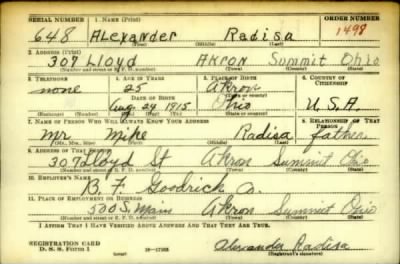 SERIAL NUMBER 1. NAME (Print) ORDER NUMBER
648 Alexander Radisa 1498
(First) (Middle) (Last)
2. ADDRESS (Print)
307 Lloyd Akron Summit Ohio
(Number and street or R. F. D. number) (Town) (County) (State)
3. TELEPHONE 4. AGE IN YEARS 5. PLACE OF BIRTH 6. COUNTRY OF CITIZENSHIP
none 25 Akron
DATE OF BIRTH (Town or county)
Aug 24 1915 Ohio U.S.A.
(Exchange) (Number) (Mo.) (Day) (Yr.) (State or country)
7. NAME OF PERSON WHO WILL ALWAYS KNOW YOUR ADDRESS 8. RELATIONSHIP OF THAT PERSON
Mr Mike Radisa father
(Mr., Mrs., Miss) (First) (Middle) (Last)
9. ADDRESS OF THAT PERSON
307 Lloyd St Akron Summit Ohio
(Number and street or R. F. D. number) (Town) (County) (State)
10. EMPLOYER'S NAME
B. F. Goodrich Co.
11. PLACE OF EMPLOYMENT OR BUSINESS
500 S. Main Akron Summit Ohio
(Number and street or R. F. D. number) (Town) (County) (State)
I AFFIRM THAT I HAVE VERIFIED ABOVE ANSWERS AND THAT THEY ARE TRUE.
REGISTRATION CARD
D. S. S. Form 1 Alexander Radisa
(over) (Registrant's signature)